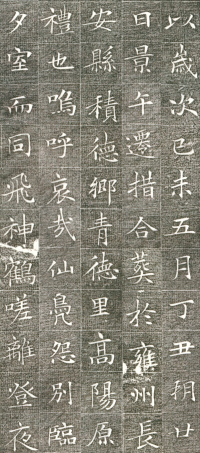 以歲次己未五月丁丑朔廿
日景午遷措合葬於雍州長
安縣積德鄉青德里高陽原
禮也嗚呼哀哉仙鳧怨別臨
夕室而同飛神鶴嗟離登夜